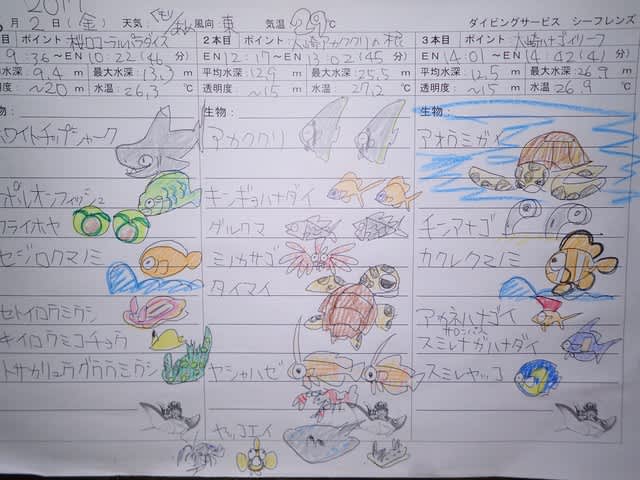 2017
月 2日(金) 天気 くもり/あめ 風向 東 気温 29℃ ダイビングサービス シーフレンズ
本目 ポイント 桜口コーラルパラダイス
9:36~EN 10:22(46分)
水深 9.4m 最大水深 13.3m
明度 ~20m 水温 26.3℃
物:
ホワイトチップシャーク
ボルオンフィッシュ
クライホヤ
セジロクマノミ
セトイロウミウシ
キイロウミコチョウ
トサカリュウグウウミウシ
2本目 ポイント 大崎アカククリの根
EN 12:17~EN 13:02(45分)
平均水深 12.9m 最大水深 25.5m
透明度 ~15m 水温 27.2℃
生物:
アカククリ
キンギョハナダイ
グルクマ
ミノカサゴ
タイマイ
ヤシャハゼ
ヤッコエイ
3本目 ポイント 大崎ハナゴイリーフ
EN 14:01~EN 14:42(41分)
平均水深 12.5m 最大水深 26.9m
透明度 ~15m 水温 26.9℃
生物:
アオウミガイ
チンアナゴ
カクレクマノミ
アカネハナゴイ
サロンパス
スミレナガハナダイ
スミレヤッコ